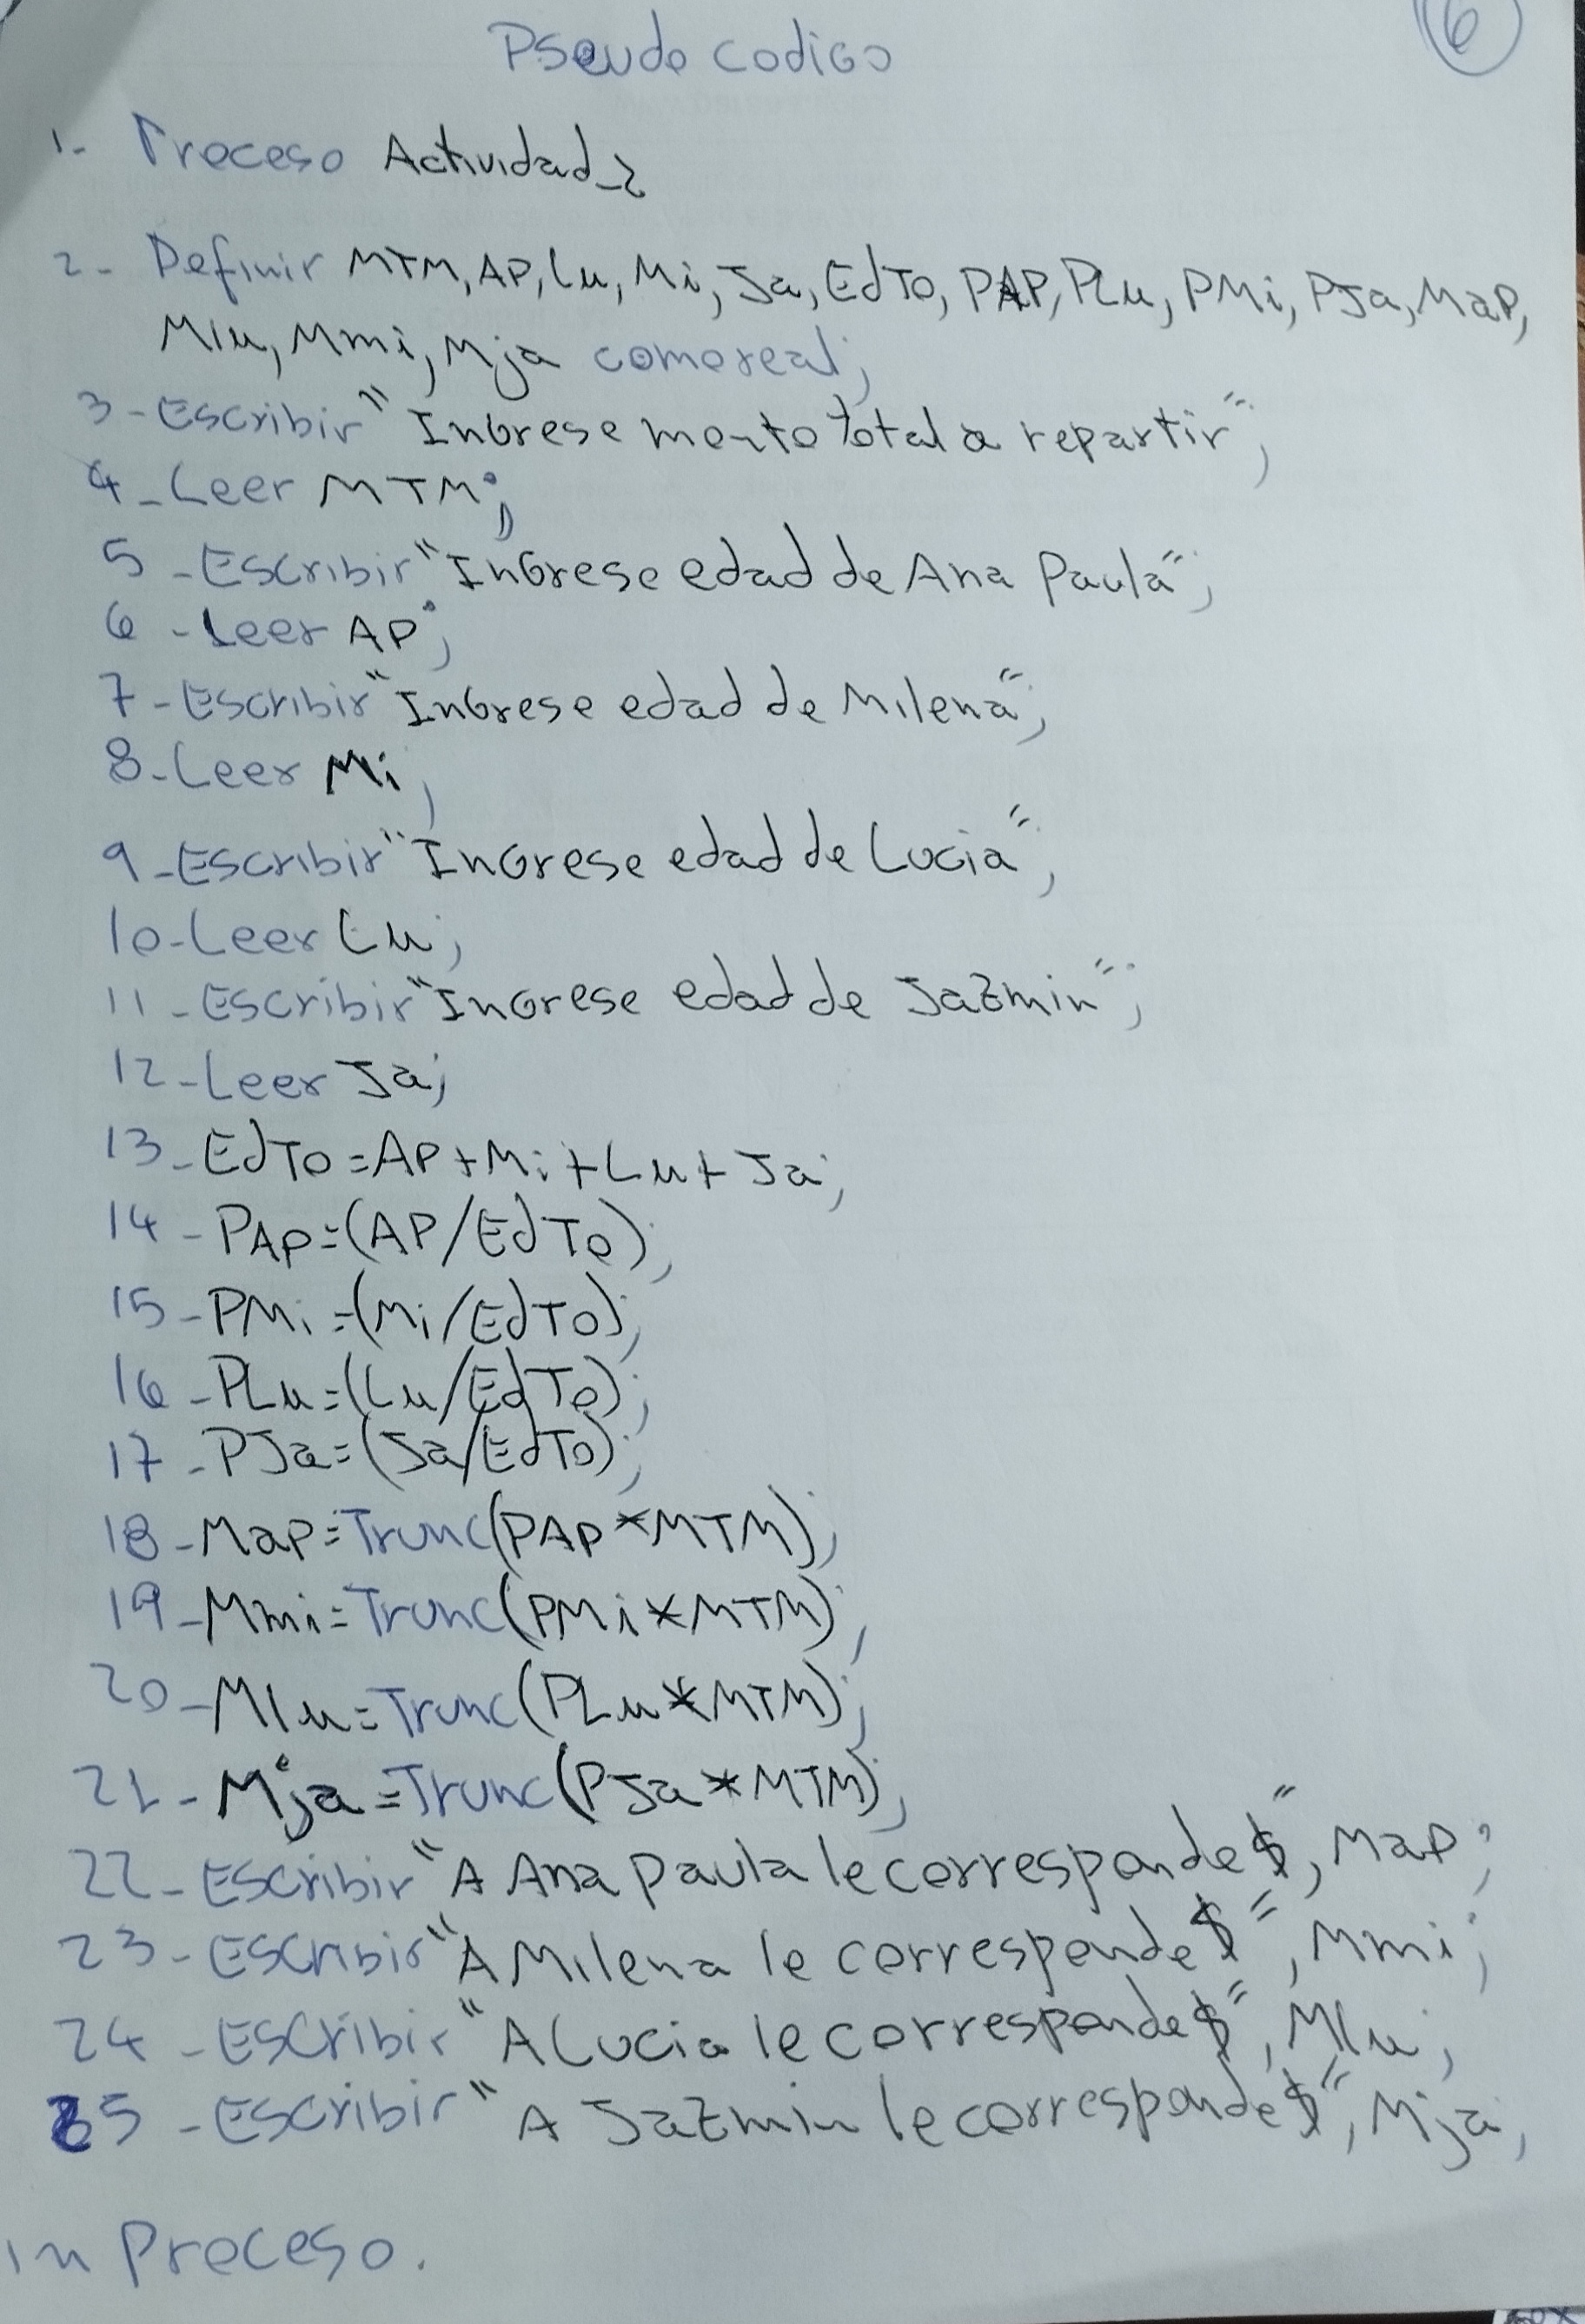 Pseudo codigo
6
1- Proceso Actividad_2
2- Definir MTM, AP, Lu, Mi, Ja, EdTo, PAP, PLu, PMi, PJa, Map,
Mlu, Mmi, Mja como real;
3-Escribir "Ingrese monto total a repartir";
4-Leer MTM;
5-Escribir "Ingrese edad de Ana Paula";
6-Leer AP;
7-Escribir "Ingrese edad de Milena";
8-Leer Mi;
9-Escribir "Ingrese edad de Lucia";
10-Leer Lu;
11-Escribir "Ingrese edad de Jazmin";
12-Leer Ja;
13-EdTo=AP+Mi+Lu+Ja;
14-PAP=(AP/EdTo);
15-PMi=(Mi/EdTo);
16-PLu=(Lu/EdTo);
17-PJa=(Ja/EdTo);
18-Map=Trunc(PAP*MTM);
19-Mmi=Trunc(PMi*MTM);
20-Mlu=Trunc(PLu*MTM);
21-Mja=Trunc(PJa*MTM);
22-Escribir "A Ana Paula le corresponde $", Map;
23-Escribir "A Milena le corresponde $", Mmi;
24-Escribir "A Lucia le corresponde $", Mlu;
25-Escribir "A Jazmin le corresponde $", Mja;
in Proceso.